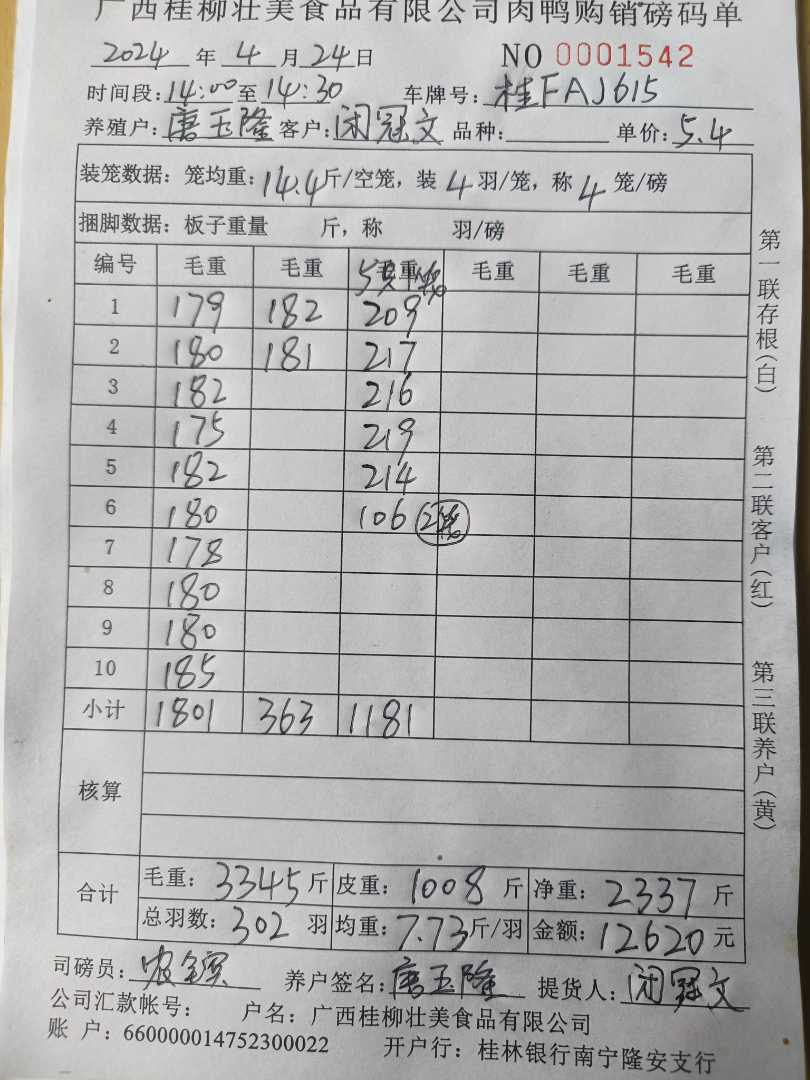 广西桂柳壮美食品有限公司肉鸭购销磅码单
2024 年 4 月 24 日 NO 0001542
时间段:14:00至14:30 车牌号:桂FAJ615
养殖户:唐玉隆 客户:闭冠文 品种: 单价:5.4
装笼数据:笼均重:14.4斤/空笼,装 4 羽/笼,称 4 笼/磅
捆脚数据:板子重量 斤,称 羽/磅
编号 毛重 毛重 毛重 5只/笼 毛重 毛重 毛重
1 179 182 209
2 180 181 217
3 182 216
4 175 219
5 182 214
6 180 106 2笼
7 178
8 180
9 180
10 185
小计 1801 363 1181
核算
合计 毛重:3345斤 皮重:1008 斤 净重:2337 斤
总羽数:302 羽 均重:7.73斤/羽 金额:12620元
司磅员: 养户签名:唐玉隆 提货人:闭冠文
公司汇款帐号: 户名:广西桂柳壮美食品有限公司
账 户:660000014752300022 开户行:桂林银行南宁隆安支行
第一联存根(白)
第二联客户(红)
第三联养户(黄)